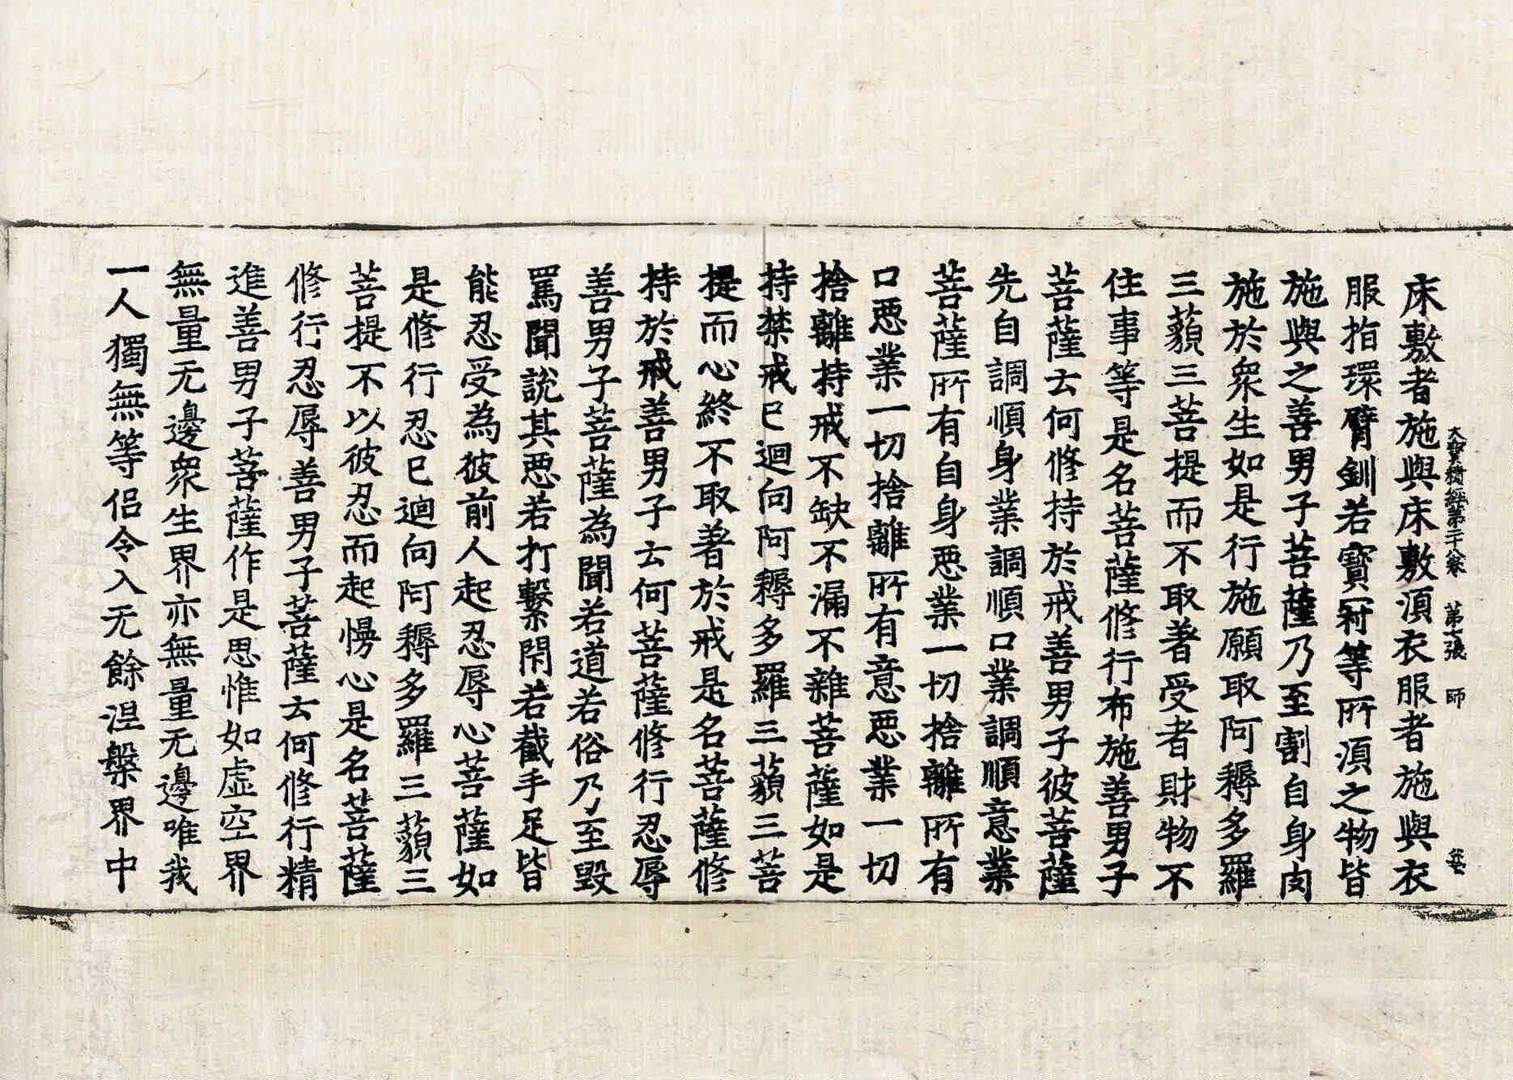 大寶積經第二十八卷 第七張 師
床敷者施與床敷湏衣服者施與衣
服指環臂釧若寶冠等所湏之物皆
施與之善男子菩薩乃至割自身肉
施於衆生如是行施願取阿耨多羅
三藐三菩提而不取著受者財物不
住事等是名菩薩修行布施善男子
菩薩云何修持於戒善男子彼菩薩
先自調順身業調順口業調順意業
菩薩所有自身惡業一切捨離所有
口惡業一切捨離所有意惡業一切
捨離持戒不缺不漏不雜菩薩如是
持禁戒已迴向阿耨多羅三藐三菩
提而心終不取著於戒是名菩薩修
持於戒善男子云何菩薩修行忍辱
善男子菩薩為聞若道若俗乃至毀
罵聞說其惡若打繫閇若截手足皆
能忍受為彼前人起忍辱心菩薩如
是修行忍已迴向阿耨多羅三藐三
菩提不以彼忍而起慢心是名菩薩
修行忍辱善男子菩薩云何修行精
進善男子菩薩作是思惟如虛空界
無量无邊衆生界亦無量无邊唯我
一人獨無等侶令入无餘涅槃界中